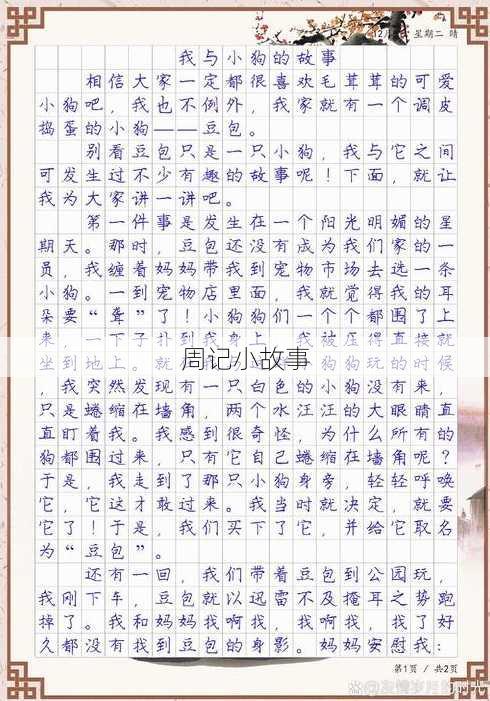 星期二 晴
我与小狗的故事
相信大家一定都很喜欢毛茸茸的可爱
小狗吧，我也不例外，我家就有一个调皮
捣蛋的小狗——豆包。
别看豆包只是一只小狗，我与它之间
可发生过不少有趣的故事呢！下面，就让
我为大家讲一讲吧。
第一件事是发生在一个阳光明媚的星
期天。那时，豆包还没有成为我们家的一
员，我缠着妈妈带我到宠物市场去选一条
小狗。一到宠物店里面，我就觉得我的耳
朵要“聋”了！小狗狗们一个个都围了上
来，一下子扑到我身上，我被压得直接就
坐到地上。就 狗狗玩的时候
周记小故事
，我突然发现有一只白色的小狗没有来，
只是蜷缩在墙角，两个水汪汪的大眼睛直
直盯着我。我感到很奇怪，为什么所有的
狗都围过来，只有它自己蜷缩在墙角呢？
于是，我走到了那只小狗身旁，轻轻呼唤
它，它这才敢过来。我当时就决定，就要
它了！于是，我们买下了它，并给它取名
为“豆包”。
还有一回，我们带着豆包到公园玩，
我刚下车，豆包就以迅雷不及掩耳之势跑
掉了。我和妈妈找啊找，我啊找，找了好
久都没有找到豆包的身影。妈妈安慰我：
第1页 / 共2页